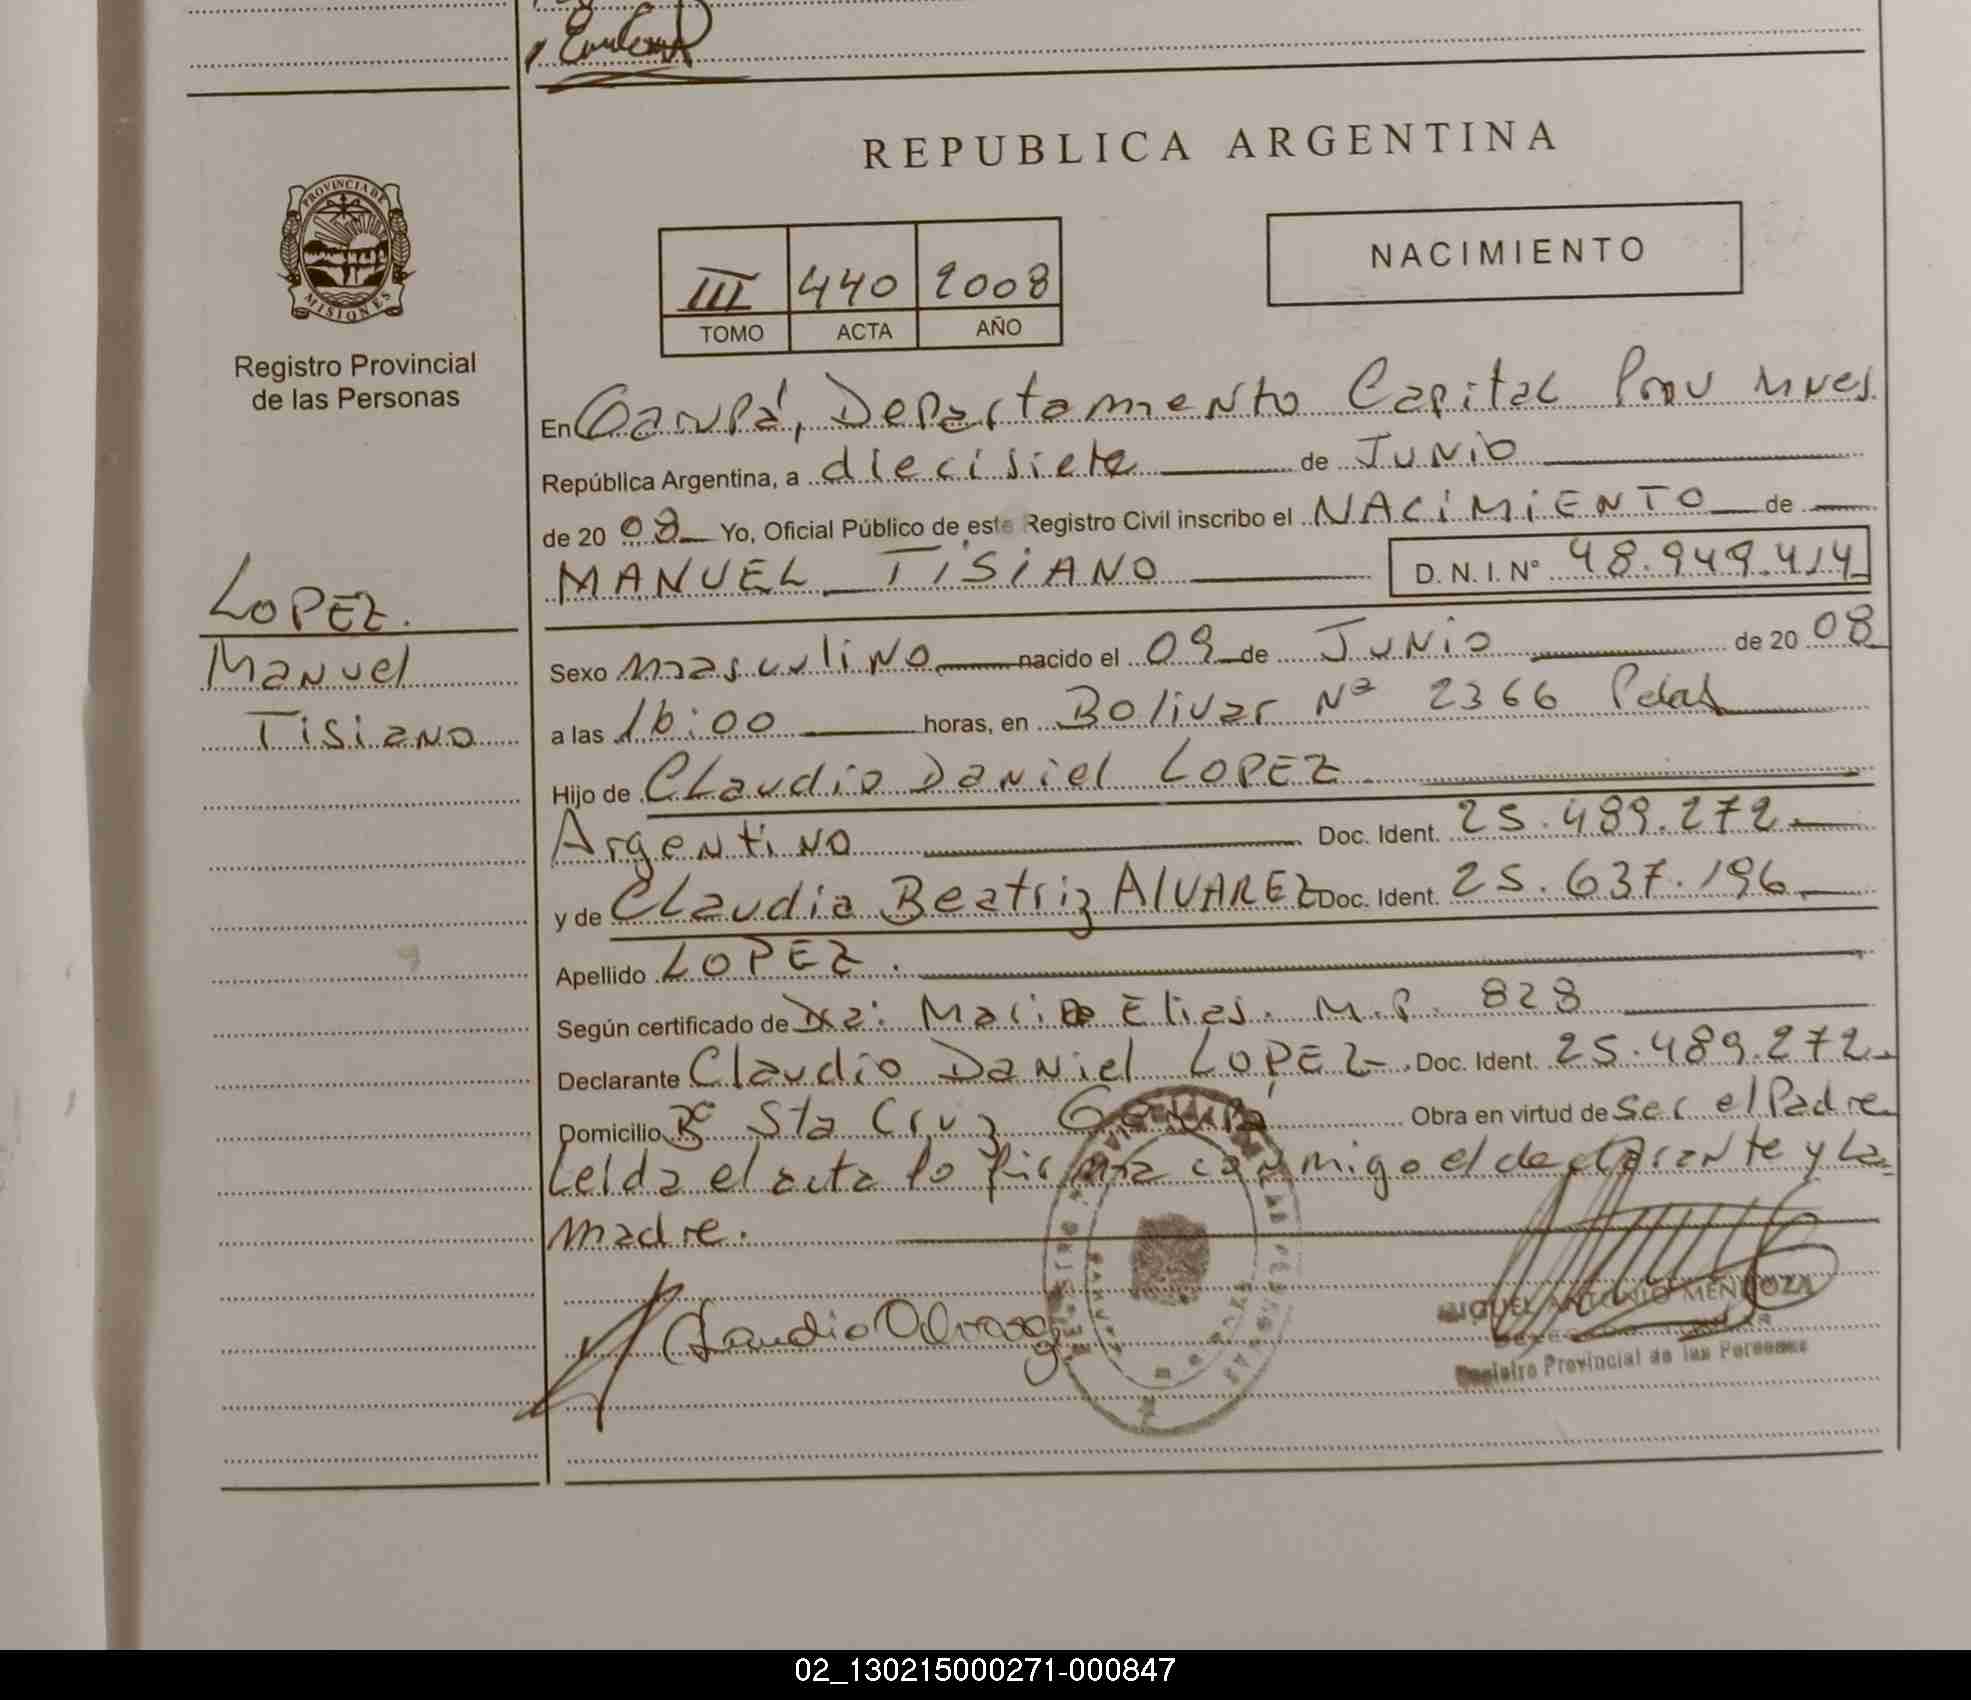 REPUBLICA ARGENTINA
PROVINCIA DE
MISIONES
Registro Provincial
de las Personas
NACIMIENTO
III 440 2008
TOMO ACTA AÑO
En Garupá, Departamento Capital Prov Mnes.
República Argentina, a diecisiete de Junio
de 20 08 Yo, Oficial Público de este Registro Civil inscribo el NACIMIENTO de
MANUEL TISIANO D.N.I. Nº 48.949.414
LOPEZ.
Manuel
Tisiano
Sexo masculino nacido el 09 de Junio de 20 08
a las 16:00 horas, en Bolivar Nº 2366 Pdas
Hijo de Claudio Daniel LOPEZ
Argentino Doc. Ident. 25.489.272
y de Claudia Beatriz ALVAREZ Doc. Ident. 25.637.196
Apellido LOPEZ.
Según certificado de Dra: Elias. M.P. 828
Declarante Claudio Daniel LOPEZ Doc. Ident. 25.489.272
Domicilio Bº Sta Cruz Garupá Obra en virtud de ser el Padre
Leida el acta lo firma conmigo el declarante y la
madre.
MIGUEL ANTONIO MENDOZA
Registro Provincial de las Personas
02_130215000271-000847